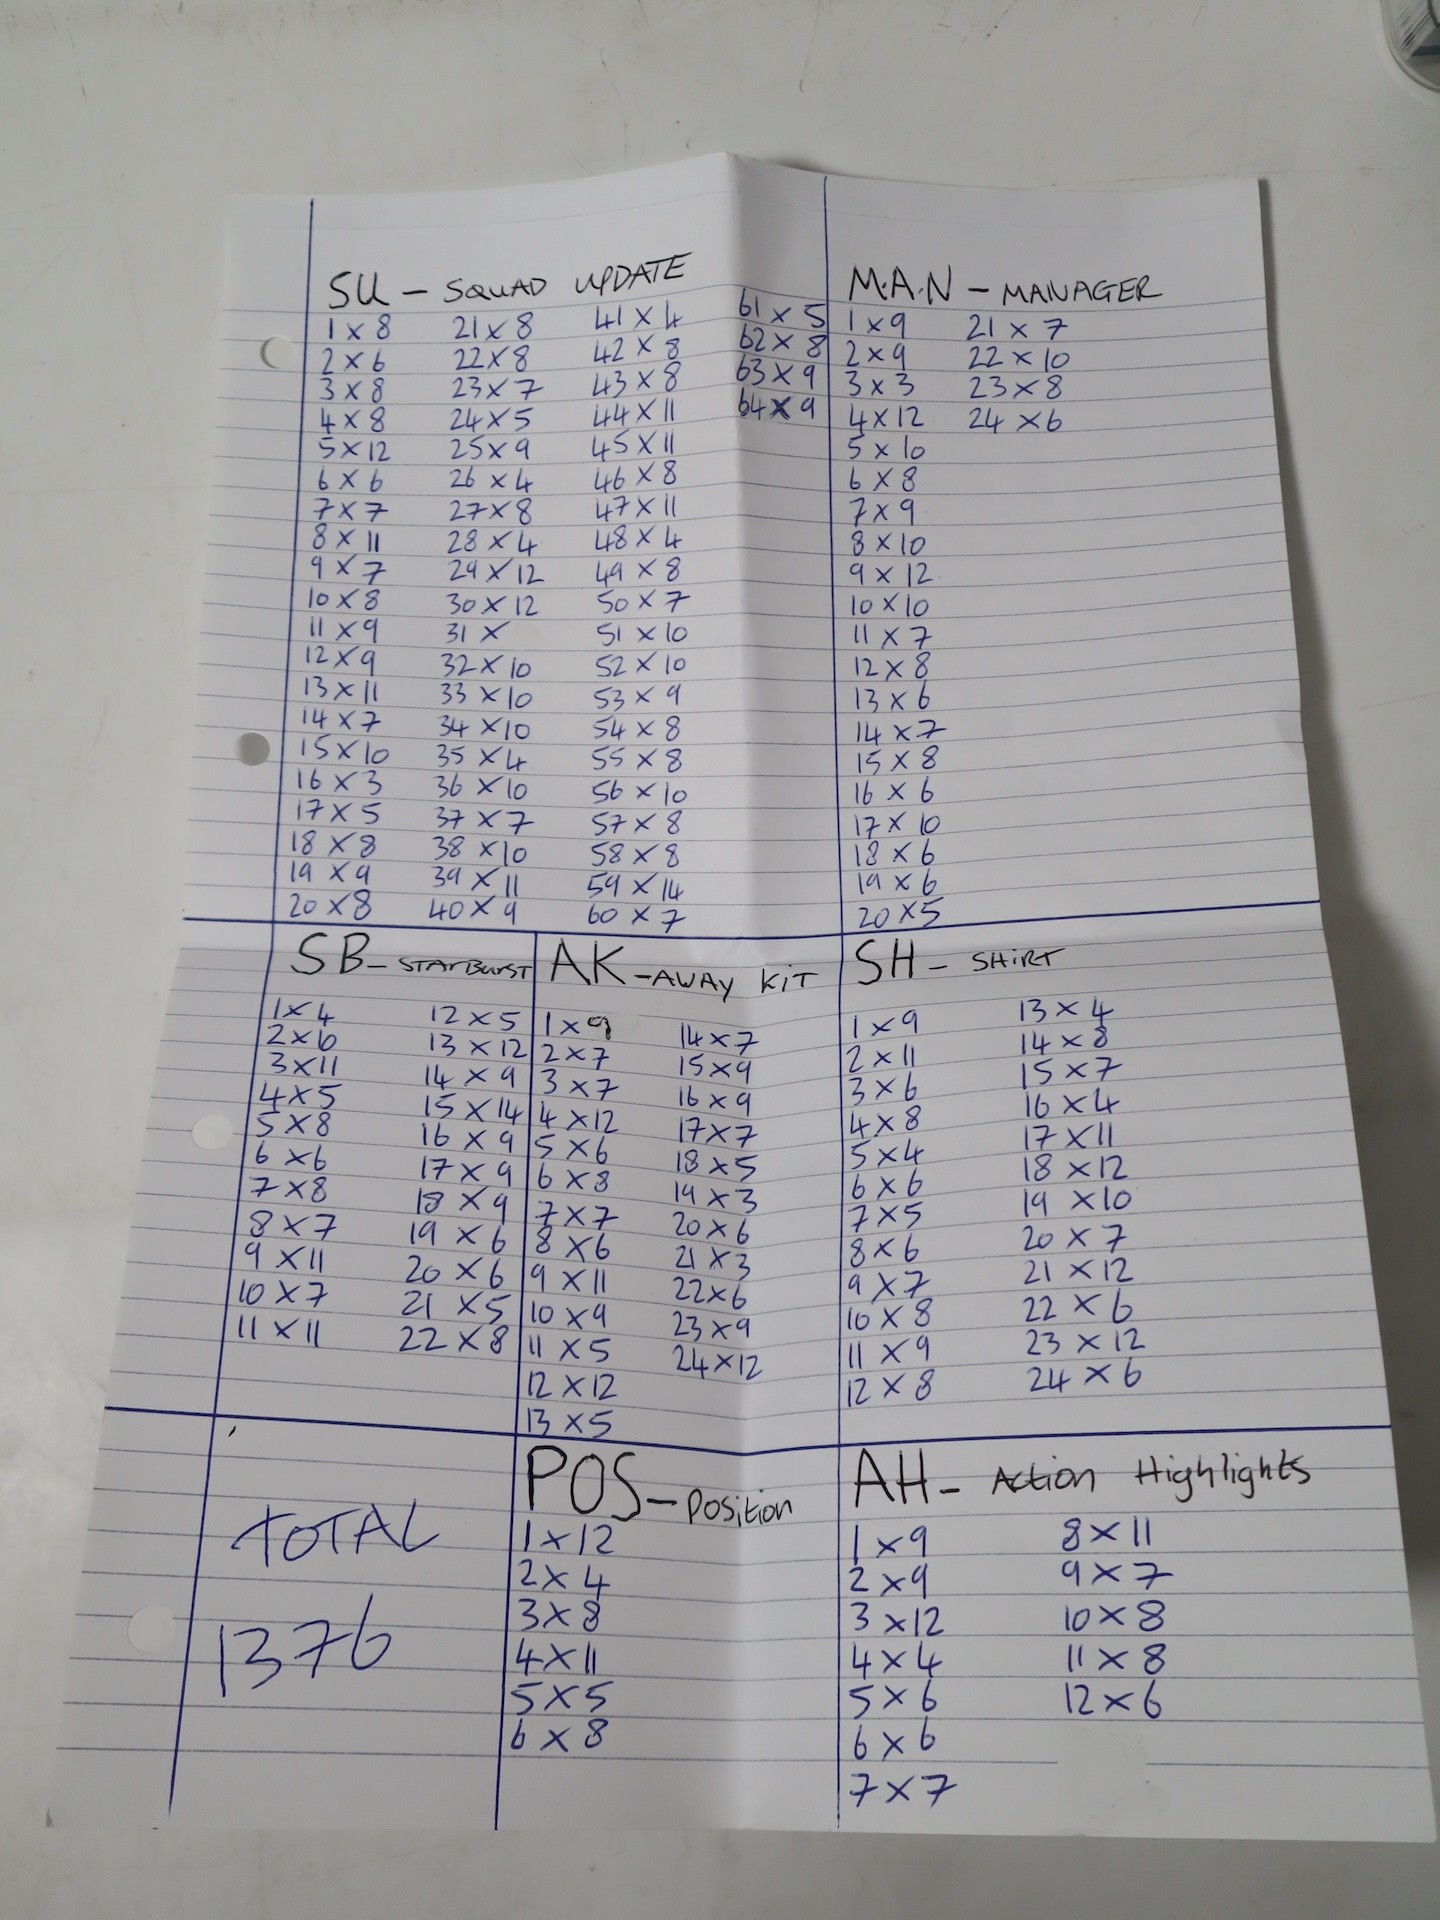 SU - SQUAD UPDATE
1 x 8 21 x 8 41 x 4 61 x 5
2 x 6 22 x 8 42 x 8 62 x 8
3 x 8 23 x 7 43 x 8 63 x 9
4 x 8 24 x 5 44 x 11 64 x 9
5 x 12 25 x 9 45 x 11
6 x 6 26 x 4 46 x 8
7 x 7 27 x 8 47 x 11
8 x 11 28 x 4 48 x 4
9 x 7 29 x 12 49 x 8
10 x 8 30 x 12 50 x 7
11 x 9 31 x 51 x 10
12 x 9 32 x 10 52 x 10
13 x 11 33 x 10 53 x 9
14 x 7 34 x 10 54 x 8
15 x 10 35 x 4 55 x 8
16 x 3 36 x 10 56 x 10
17 x 5 37 x 7 57 x 8
18 x 8 38 x 10 58 x 8
19 x 9 39 x 11 59 x 14
20 x 8 40 x 9 60 x 7
M.A.N - MANAGER
1 x 9 21 x 7
2 x 9 22 x 10
3 x 3 23 x 8
4 x 12 24 x 6
5 x 10
6 x 8
7 x 9
8 x 10
9 x 12
10 x 10
11 x 7
12 x 8
13 x 6
14 x 7
15 x 8
16 x 6
17 x 10
18 x 6
19 x 6
20 x 5
SB - STARBURST
1 x 4 12 x 5
2 x 6 13 x 12
3 x 11 14 x 9
4 x 5 15 x 14
5 x 8 16 x 9
6 x 6 17 x 9
7 x 8 18 x 9
8 x 7 19 x 6
9 x 11 20 x 6
10 x 7 21 x 5
11 x 11 22 x 8
AK - AWAY KIT
1 x 9 14 x 7
2 x 7 15 x 9
3 x 7 16 x 9
4 x 12 17 x 7
5 x 6 18 x 5
6 x 8 19 x 3
7 x 7 20 x 6
8 x 6 21 x 3
9 x 11 22 x 6
10 x 9 23 x 9
11 x 5 24 x 12
12 x 12
13 x 5
SH - SHIRT
1 x 9 13 x 4
2 x 11 14 x 8
3 x 6 15 x 7
4 x 8 16 x 4
5 x 4 17 x 11
6 x 6 18 x 12
7 x 5 19 x 10
8 x 6 20 x 7
9 x 7 21 x 12
10 x 8 22 x 6
11 x 9 23 x 12
12 x 8 24 x 6
TOTAL
1376
POS - Position
1 x 12
2 x 4
3 x 8
4 x 11
5 x 5
6 x 8
AH - Action Highlights
1 x 9 8 x 11
2 x 9 9 x 7
3 x 12 10 x 8
4 x 4 11 x 8
5 x 6 12 x 6
6 x 6
7 x 7